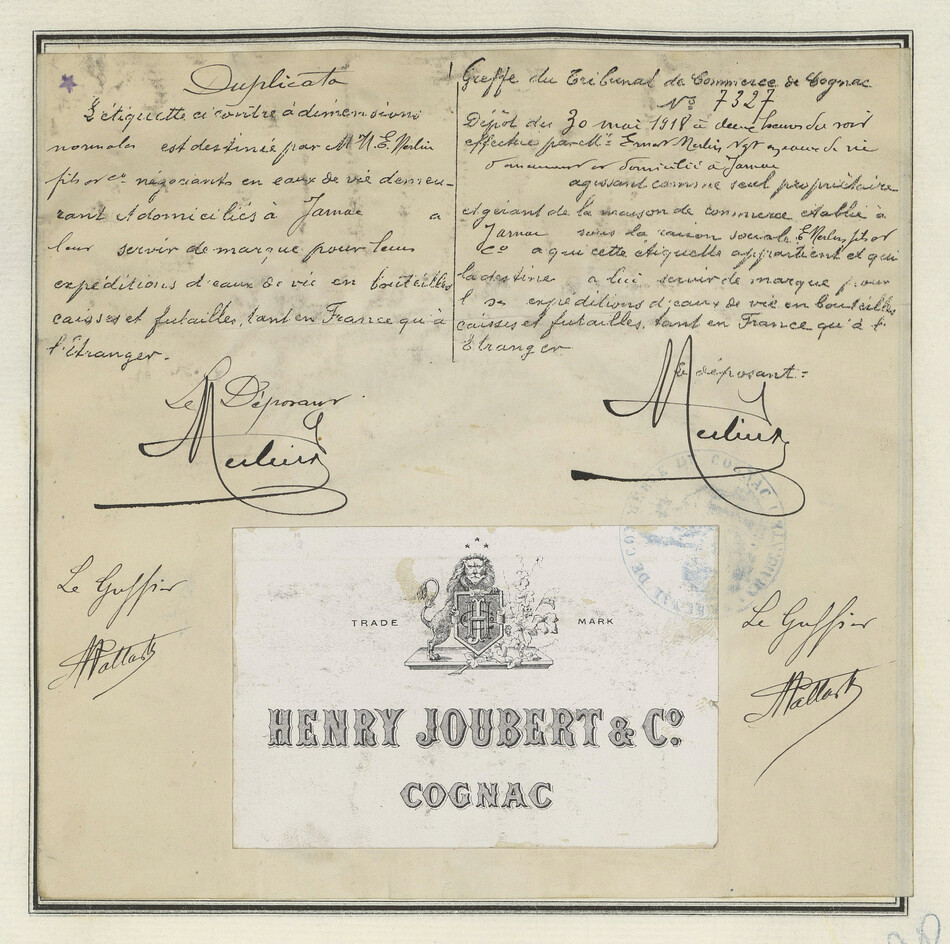 Duplicata
L'étiquette ci contre à dimensions
normales est destinée par M. E. Merlin
fils et Cº négociants en eaux de vie demeu-
rant & domiciliés à Jarnac a
leur servir de marque pour leurs
expéditions d'eaux de vie en bouteilles
caisses et futailles, tant en France qu'à
l'étranger.
Le Déposant
Merlin
Le Greffier
Greffe du Tribunal de Commerce de Cognac
Nº 7327
Dépôt du 30 mai 1918 à deux heures du soir
effectué par Mr. Ernest Merlin Ngt en eaux de vie
demeurant et domicilié à Jarnac
agissant comme seul propriétaire
et gérant de la maison de commerce établie à
Jarnac sous la raison sociale E. Merlin fils et
Cº a qui cette étiquette appartient et qui
la destine a lui servir de marque pour
ses expéditions d'eaux de vie en bouteilles
caisses et futailles, tant en France qu'à l'
Etranger
Le déposant:
Merlin
Le Greffier
TRADE MARK
HENRY JOUBERT & Cº.
COGNAC